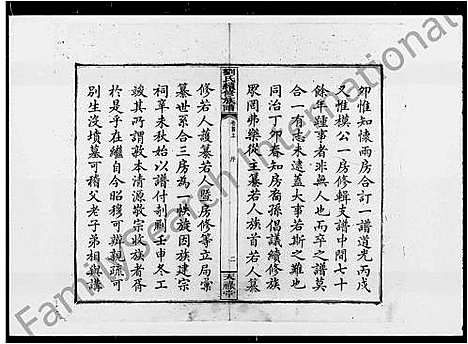 卯惟知懷兩房合訂一譜道光丙戌
又惟模公一房修輯支譜中間七十
餘年運事者非無人也而卒之譜莫
合一有志未逮蓋大事若斯之難也
同治丁卯春知房裔孫倡議續修族
眾罔弗樂從主纂若人族首若人纂
劉氏續修族譜
卷首上 序 二 天祿亭
修若人護纂若人暨房修等立局彙
纂世系合三房為一帙旋因族建宗
祠辛未秋始以譜付剞劂壬申冬工
竣其所謂敦本清源敬宗收族者胥
於是乎在繼自今昭穆可辨親疏可
別生沒墳墓可稽父老子弟相與講
FamilySearch International